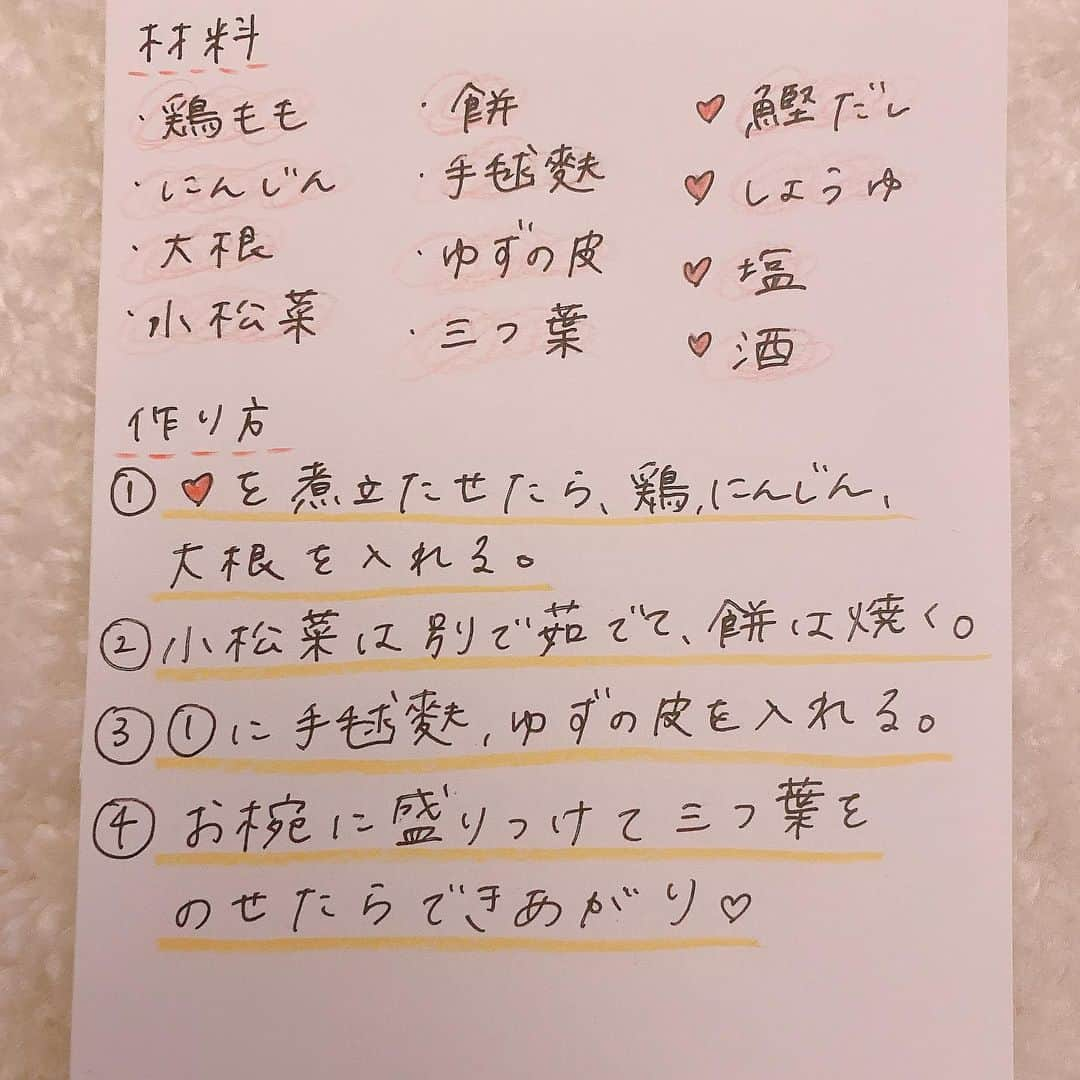 材料
・鶏もも
・にんじん
・大根
・小松菜
・餅
・手毬麩
・ゆずの皮
・三つ葉
♥鰹だし
♥しょうゆ
♥塩
♥酒
作り方
①♥を煮立たせたら、鶏、にんじん、
大根を入れる。
②小松菜は別で茹でて、餅は焼く。
③①に手毬麩、ゆずの皮を入れる。
④お椀に盛りつけて三つ葉を
のせたらできあがり♡